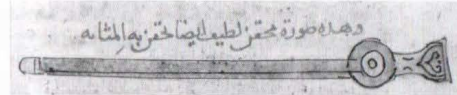 وهذه صورة محقن لطيف ايضا تحقن به المثانه